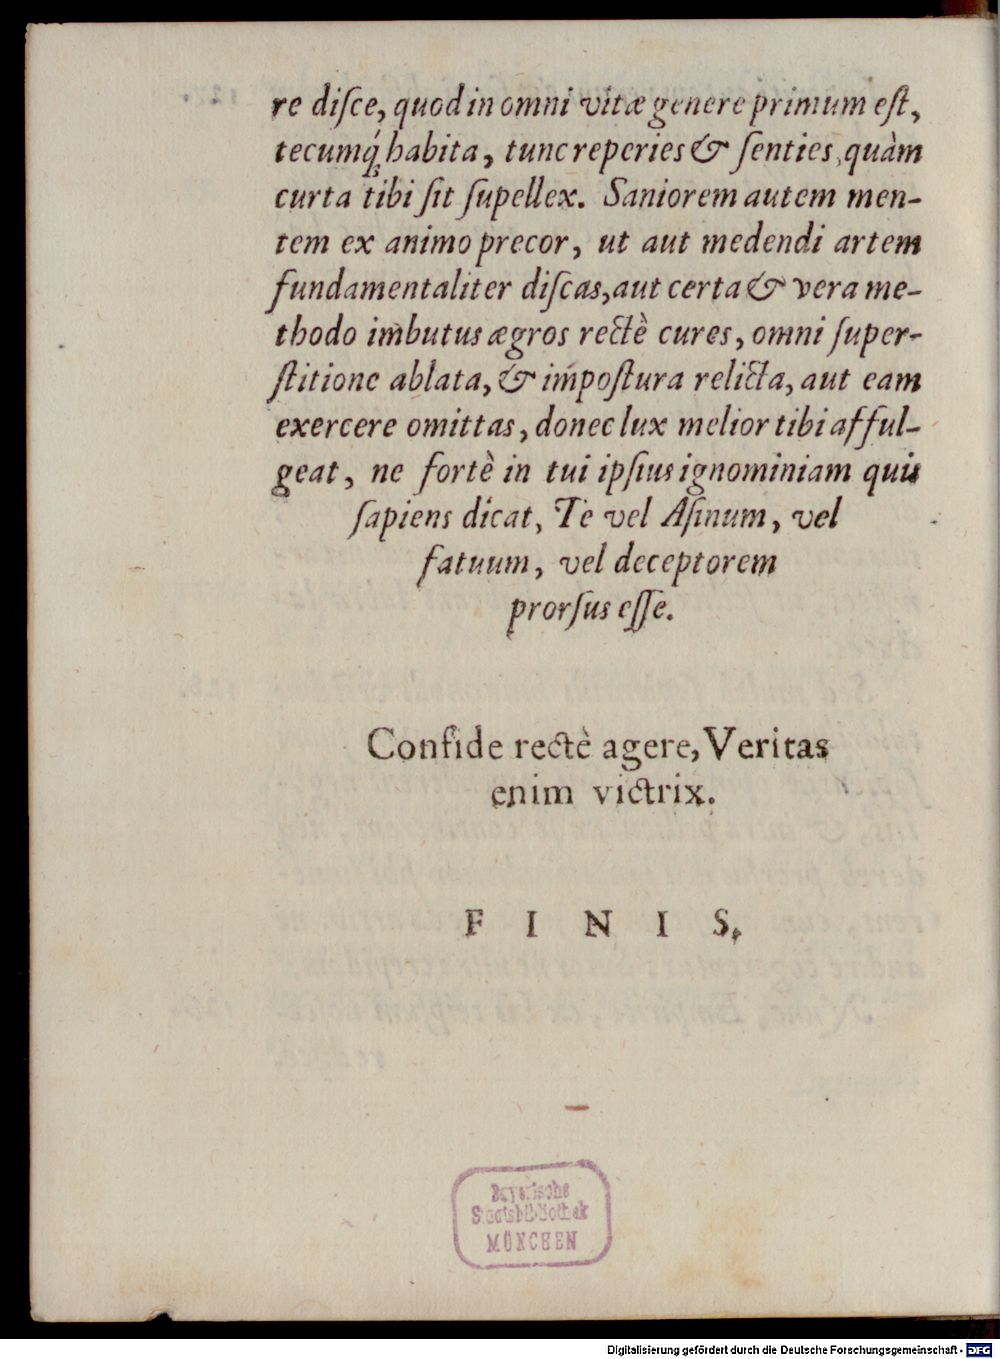 re diſce, quod in omni vitæ genere primum eſt,
tecumq́ꝫ habita, tunc reperies & ſenties, quàm
curta tibi ſit ſupellex. Saniorem autem men-
tem ex animo precor, ut aut medendi artem
fundamentaliter diſcas, aut certa & vera me-
thodo imbutus ægros rectè cures, omni ſuper-
ſtitione ablata, & impoſtura relicta, aut eam
exercere omittas, donec lux melior tibi afful-
geat, ne fortè in tui ipſius ignominiam quis
ſapiens dicat, Te vel Aſinum, vel
fatuum, vel deceptorem
prorſus eſſe.
Confide rectè agere, Veritas
enim victrix.
F I N I S.
Bayerische
Staatsbibliothek
MÜNCHEN
Digitalisierung gefördert durch die Deutsche Forschungsgemeinschaft - DFG